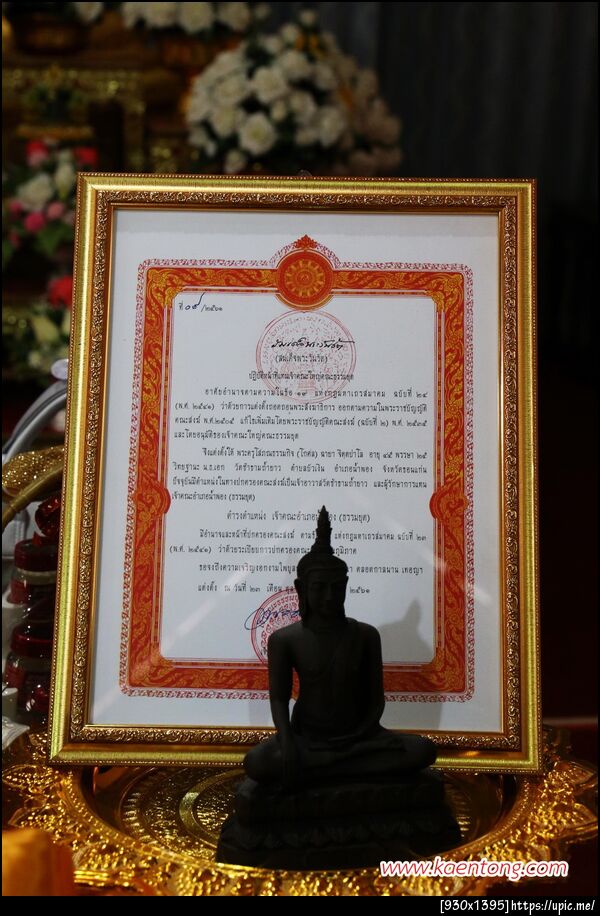 ที่ ๐๙/๒๕๖๑
(สมเด็จพระวันรัต)
ปฏิบัติหน้าที่แทนเจ้าคณะใหญ่คณะธรรมยุต
อาศัยอำนาจตามความในข้อ ๑๙ แห่งกฎมหาเถรสมาคม ฉบับที่ ๒๔
(พ.ศ. ๒๕๔๑) ว่าด้วยการแต่งตั้งถอดถอนพระสังฆาธิการ ออกตามความในพระราชบัญญัติ
คณะสงฆ์ พ.ศ.๒๕๐๕ แก้ไขเพิ่มเติมโดยพระราชบัญญัติคณะสงฆ์ (ฉบับที่ ๒) พ.ศ. ๒๕๓๕
และโดยอนุมัติของเจ้าคณะใหญ่คณะธรรมยุต
จึงแต่งตั้งให้ พระครูโสภณธรรมกิจ (โกศล) ฉายา อายุ ๔๙ พรรษา ๒๙
วิทยฐานะ น.ธ.เอก วัดป่าชำถ้ำยาว อำเภอน้ำพอง จังหวัดขอนแก่น
ปัจจุบันมีตำแหน่งในทางปกครองคณะสงฆ์เป็นเจ้าอาวาสวัดป่าชำถ้ำยาว และผู้รักษาการแทน
เจ้าคณะอำเภอน้ำพอง (ธรรมยุต)
ดำรงตำแหน่ง เจ้าคณะอำเภอน้ำพอง (ธรรมยุต)
มีอำนาจและหน้าที่ปกครองคณะสงฆ์ แห่งกฎมหาเถรสมาคม ฉบับที่ ๒๓
(พ.ศ. ๒๕๔๑) ว่าด้วยระเบียบการปกครองคณะ ภูมิภาค
ขอจงถึงความเจริญงอกงามไพบูล ตลอดกาลนาน เทอญฯ
แต่งตั้ง ณ วันที่ ๒๓ เดือน ๒๕๖๑
www.kaentong.com
[930x1395]https://upic.me/